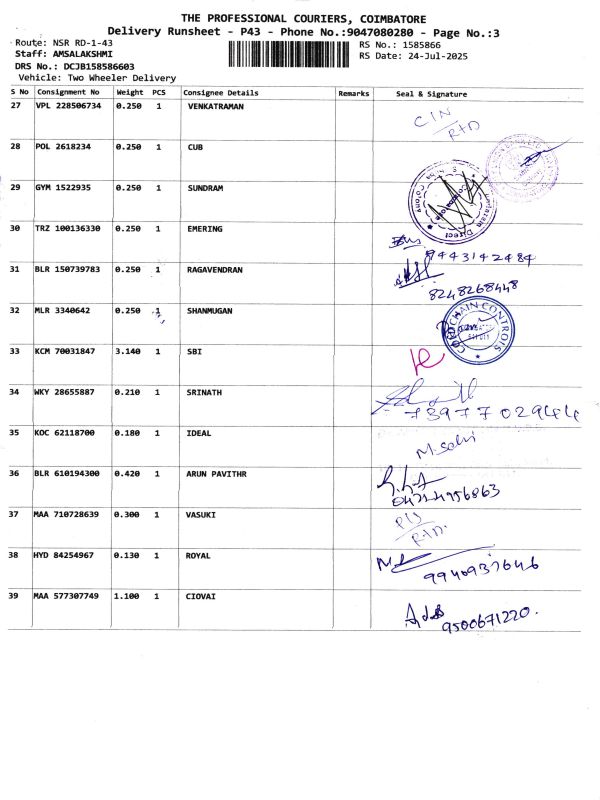 THE PROFESSIONAL COURIERS, COIMBATORE
Delivery Runsheet - P43 - Phone No.:9047080280 - Page No.:3
Route: NSR RD-1-43
RS No.: 1585866
Staff: AMSALAKSHMI
RS Date: 24-Jul-2025
DRS No.: DCJB158586603
Vehicle: Two Wheeler Delivery
S No Consignment No Weight PCS Consignee Details Remarks Seal & Signature
27 VPL 228506734 0.250 1 VENKATRAMAN
CIN
RTD
28 POL 2618234 0.250 1 CUB
29 GYM 1522935 0.250 1 SUNDRAM
30 TRZ 100136330 0.250 1 EMERING
9443142484
31 BLR 150739783 0.250 1 RAGAVENDRAN
8248268448
32 MLR 3340642 0.250 1 SHANMUGAN
COLDCHAIN CONTROLS
33 KCM 70031847 3.140 1 SBI
34 WKY 28655887 0.210 1 SRINATH
7397702944
35 KOC 62118700 0.180 1 IDEAL
36 BLR 610194300 0.420 1 ARUN PAVITHR
37 MAA 710728639 0.300 1 VASUKI
38 HYD 84254967 0.130 1 ROYAL
9940937646
39 MAA 577307749 1.100 1 CIOVAI
9500671220.